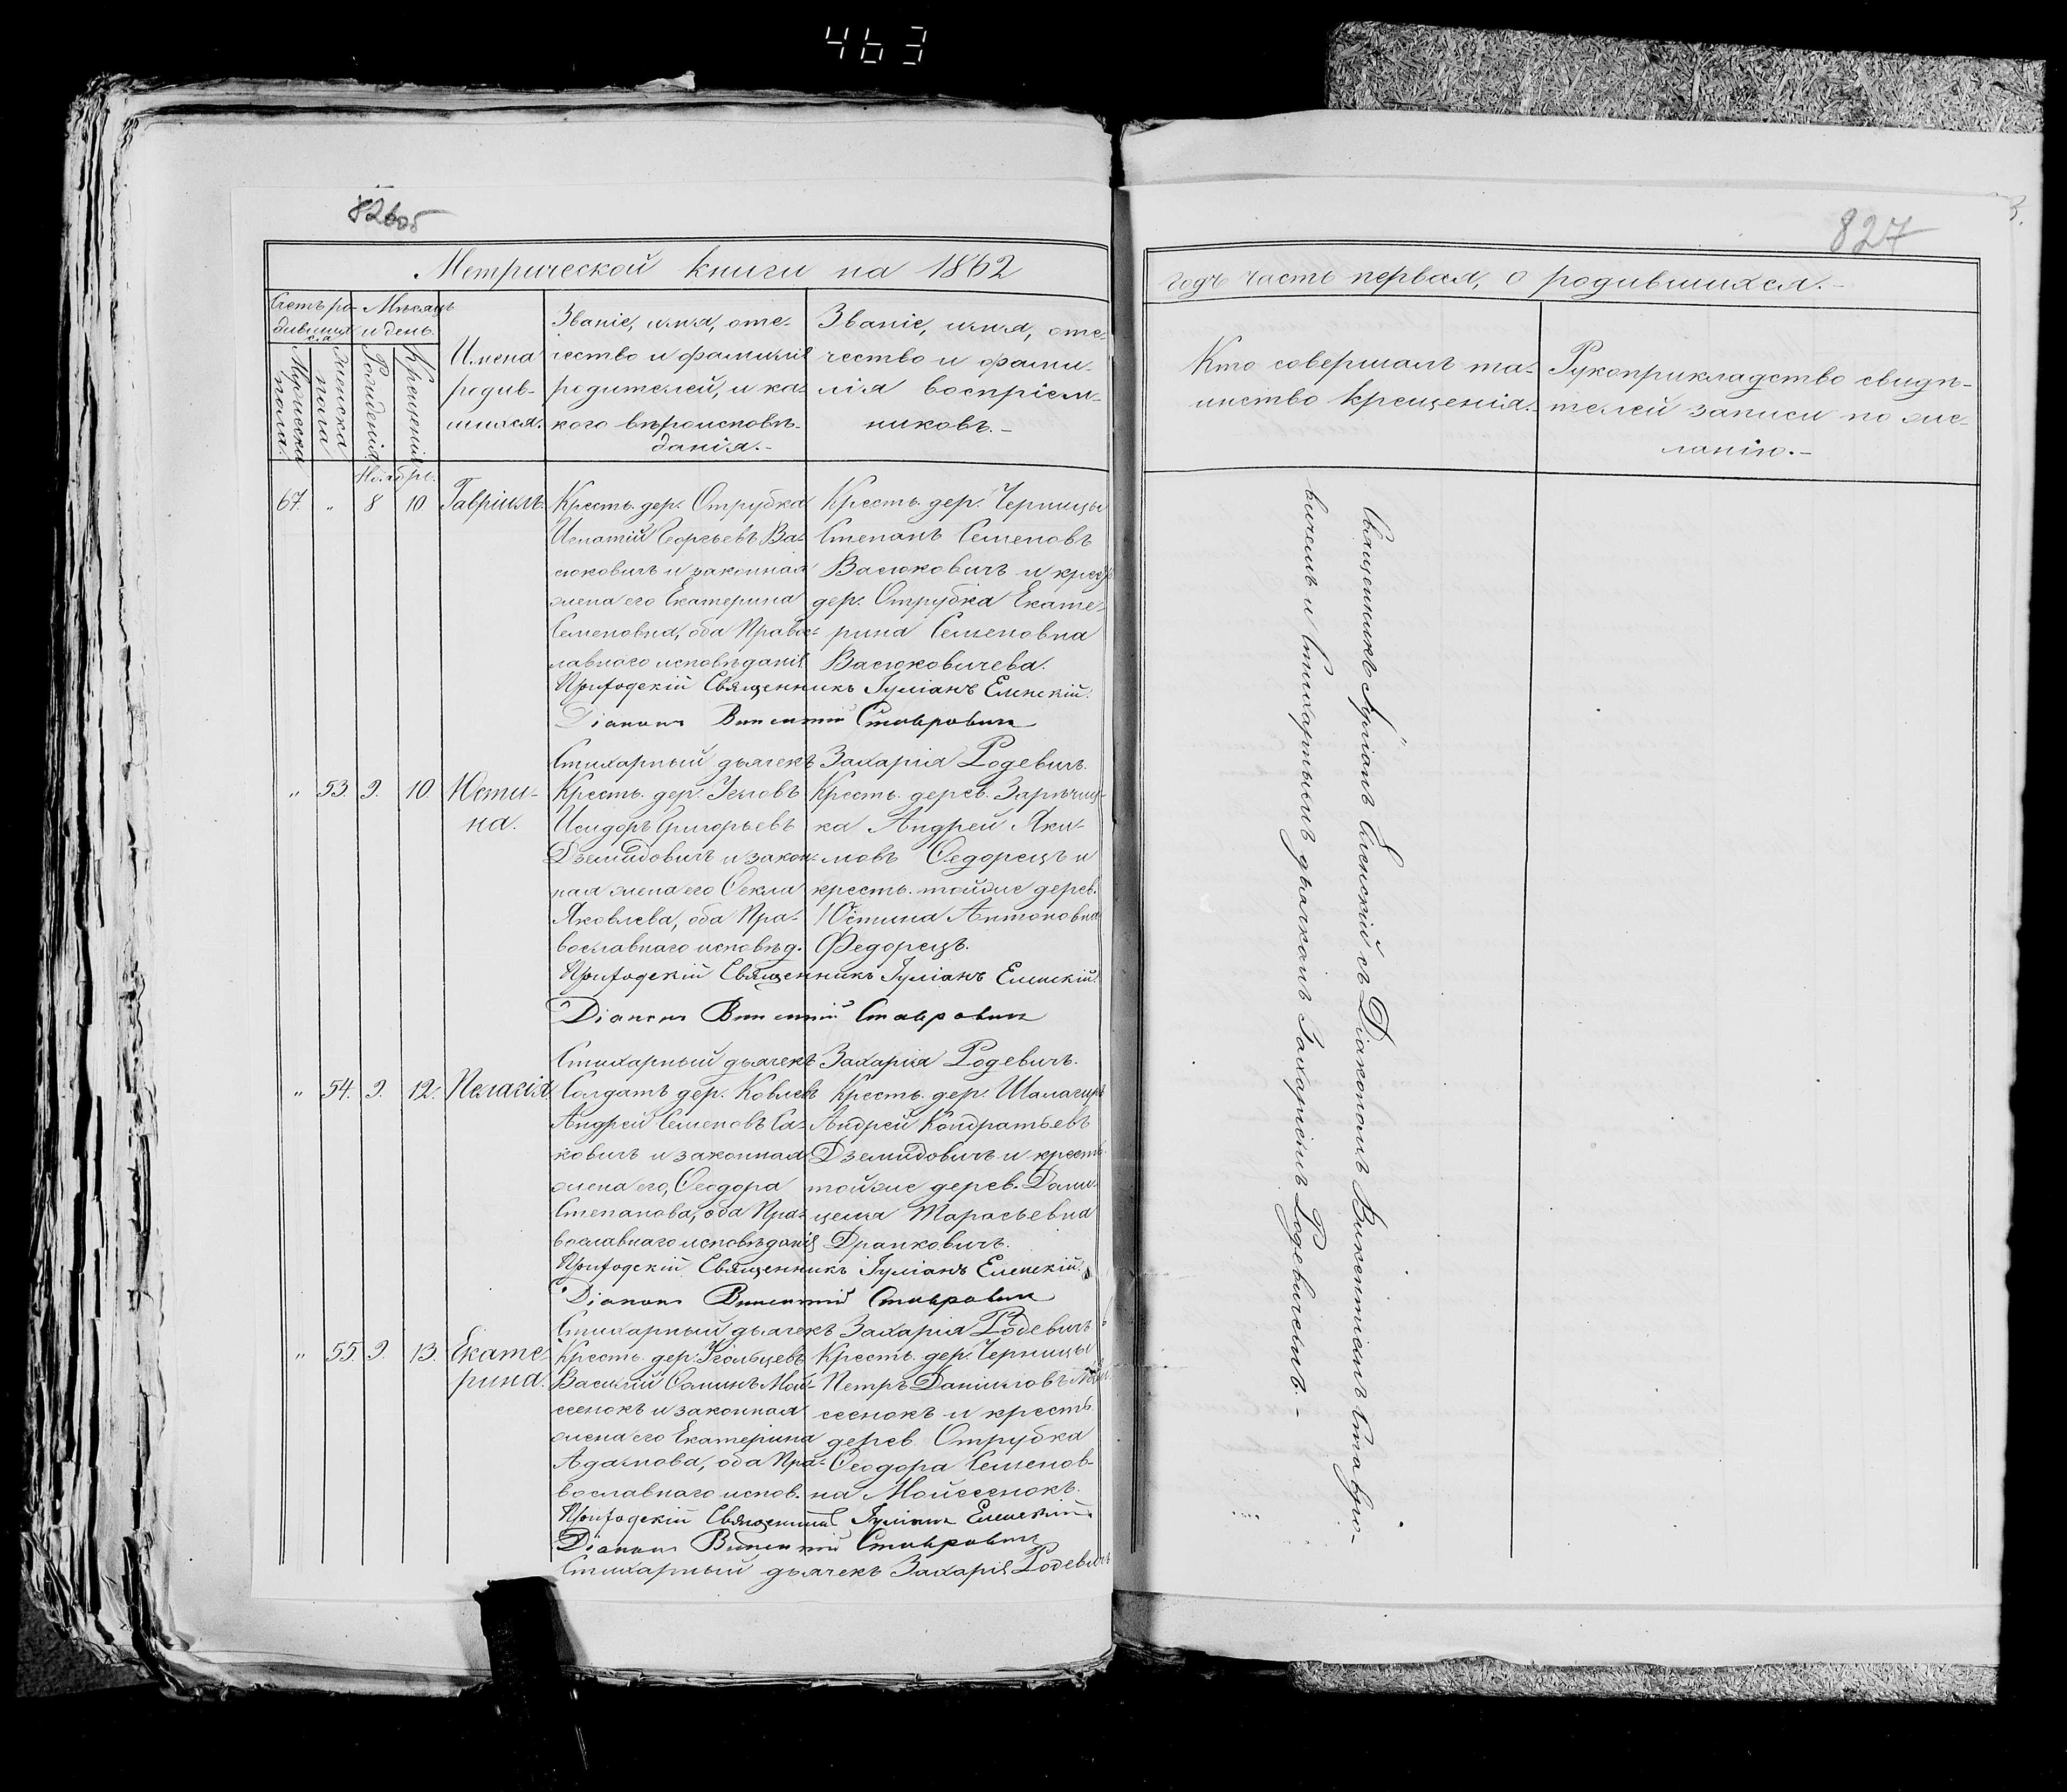 463
826об
827
Метрической книги на 1862
годъ часть первая, о родившихся.-
Счетъ ро-
дивших
ся
Мужеска
пола.
Женска
пола
Мѣсяцъ
и день.
Рожденія
Крещенія
Имена
родив-
шихся.
Званіе, имя, оте-
чество и фамилія
родителей, и ка-
кого вѣроисповѣ-
данія.-
Званіе, имя, оте-
чество и фами-
лія воспріем-
никовъ.-
Кто совершалъ та-
инство крещенія.-
Рукоприкладство свидѣ-
телей записи по же-
ланію.-
Ноябрь.
67. „ 8 10 Гавріилъ.
Кресть. дер. Отрубка
Игнатій Георгіевъ Ва-
сюковичъ и законная
жена его Екатерина
Семеновна, оба Правос-
лавного исповѣданія
Кресть. дер. Черницы
Степанъ Семеновъ
Васюковичъ и кресть
дер. Отрубка Екате-
рина Семеновна
Васюковичева.
Приходскій Священникъ Іуліанъ Еленскій.
Діаконъ Викентій Ставровичъ
Стихарный дьячекъ Захарія Родевичъ.
„ 53. 9. 10. Юсти-
на.
Кресть. дер. Угловъ
Исидоръ Григорьевъ
Дземидовичъ и закон-
ная жена его Ѳекла
Яковлева, оба Пра-
вославнаго исповѣд.
Кресть. дерев. Зарѣчиц-
ка Андрей Яки-
мовъ Ѳедорецъ и
кресть. тойже дерев.
Юстина Антоновна
Федорецъ.
Приходскій Священникъ Іуліанъ Еленскій.
Діаконъ Викентій Ставровичъ
Стихарный дьячекъ Захарія Родевичъ.
„ 54. 9. 12. Пелагія
Солдатъ дер. Ковлевъ
Андрей Семеновъ Са-
ковичъ и законная
жена его, Ѳеодора
Степанова, оба Пра-
вославнаго исповѣданія
Кресть. дер. Шалагиръ
Андрей Кондратьевъ
Дземидовичъ и кресть.
тойже дерев. Доми-
цела Тарасьевна
Драпковичъ.
Приходскій Священникъ Іуліанъ Еленскій.
Діаконъ Викентій Ставровичъ
Стихарный дьячекъ Захарія Родевичъ
„ 55. 9. 13. Екате-
рина.
Кресть. дер. Угольцевъ
Василій Ѳоминъ Мой-
сеенокъ и законная
жена его Екатерина
Адамова, оба Пра-
вославнаго испов.
Кресть. дер. Черницы
Петръ Даніиловъ Мой-
сеенокъ и кресть.
дерев. Отрубка
Ѳеодора Семенов-
на Мойсеенокъ.
Приходскій Священникъ Іуліанъ Еленскій.
Діаконъ Викентій Ставровичъ
Стихарный дьячекъ Захарія Родевичъ
Священникъ Іуліанъ Еленскій съ Діакономъ Викентіемъ Ставро-
вичемъ и Стихарнымъ дьячкомъ Захаріемъ Родевичемъ.-